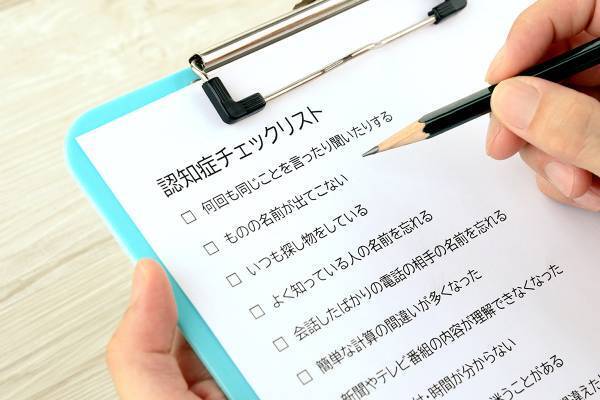 認知症チェックリスト
□ 何回も同じことを言ったり聞いたりする
□ ものの名前が出てこない
□ いつも探し物をしている
□ よく知っている人の名前を忘れる
□ 会話したばかりの電話の相手の名前を忘れる
□ 簡単な計算の間違いが多くなった
□ 新聞やテレビ番組の内容が理解できなくなった
・時間が分からない
迷うことがある
間違えた